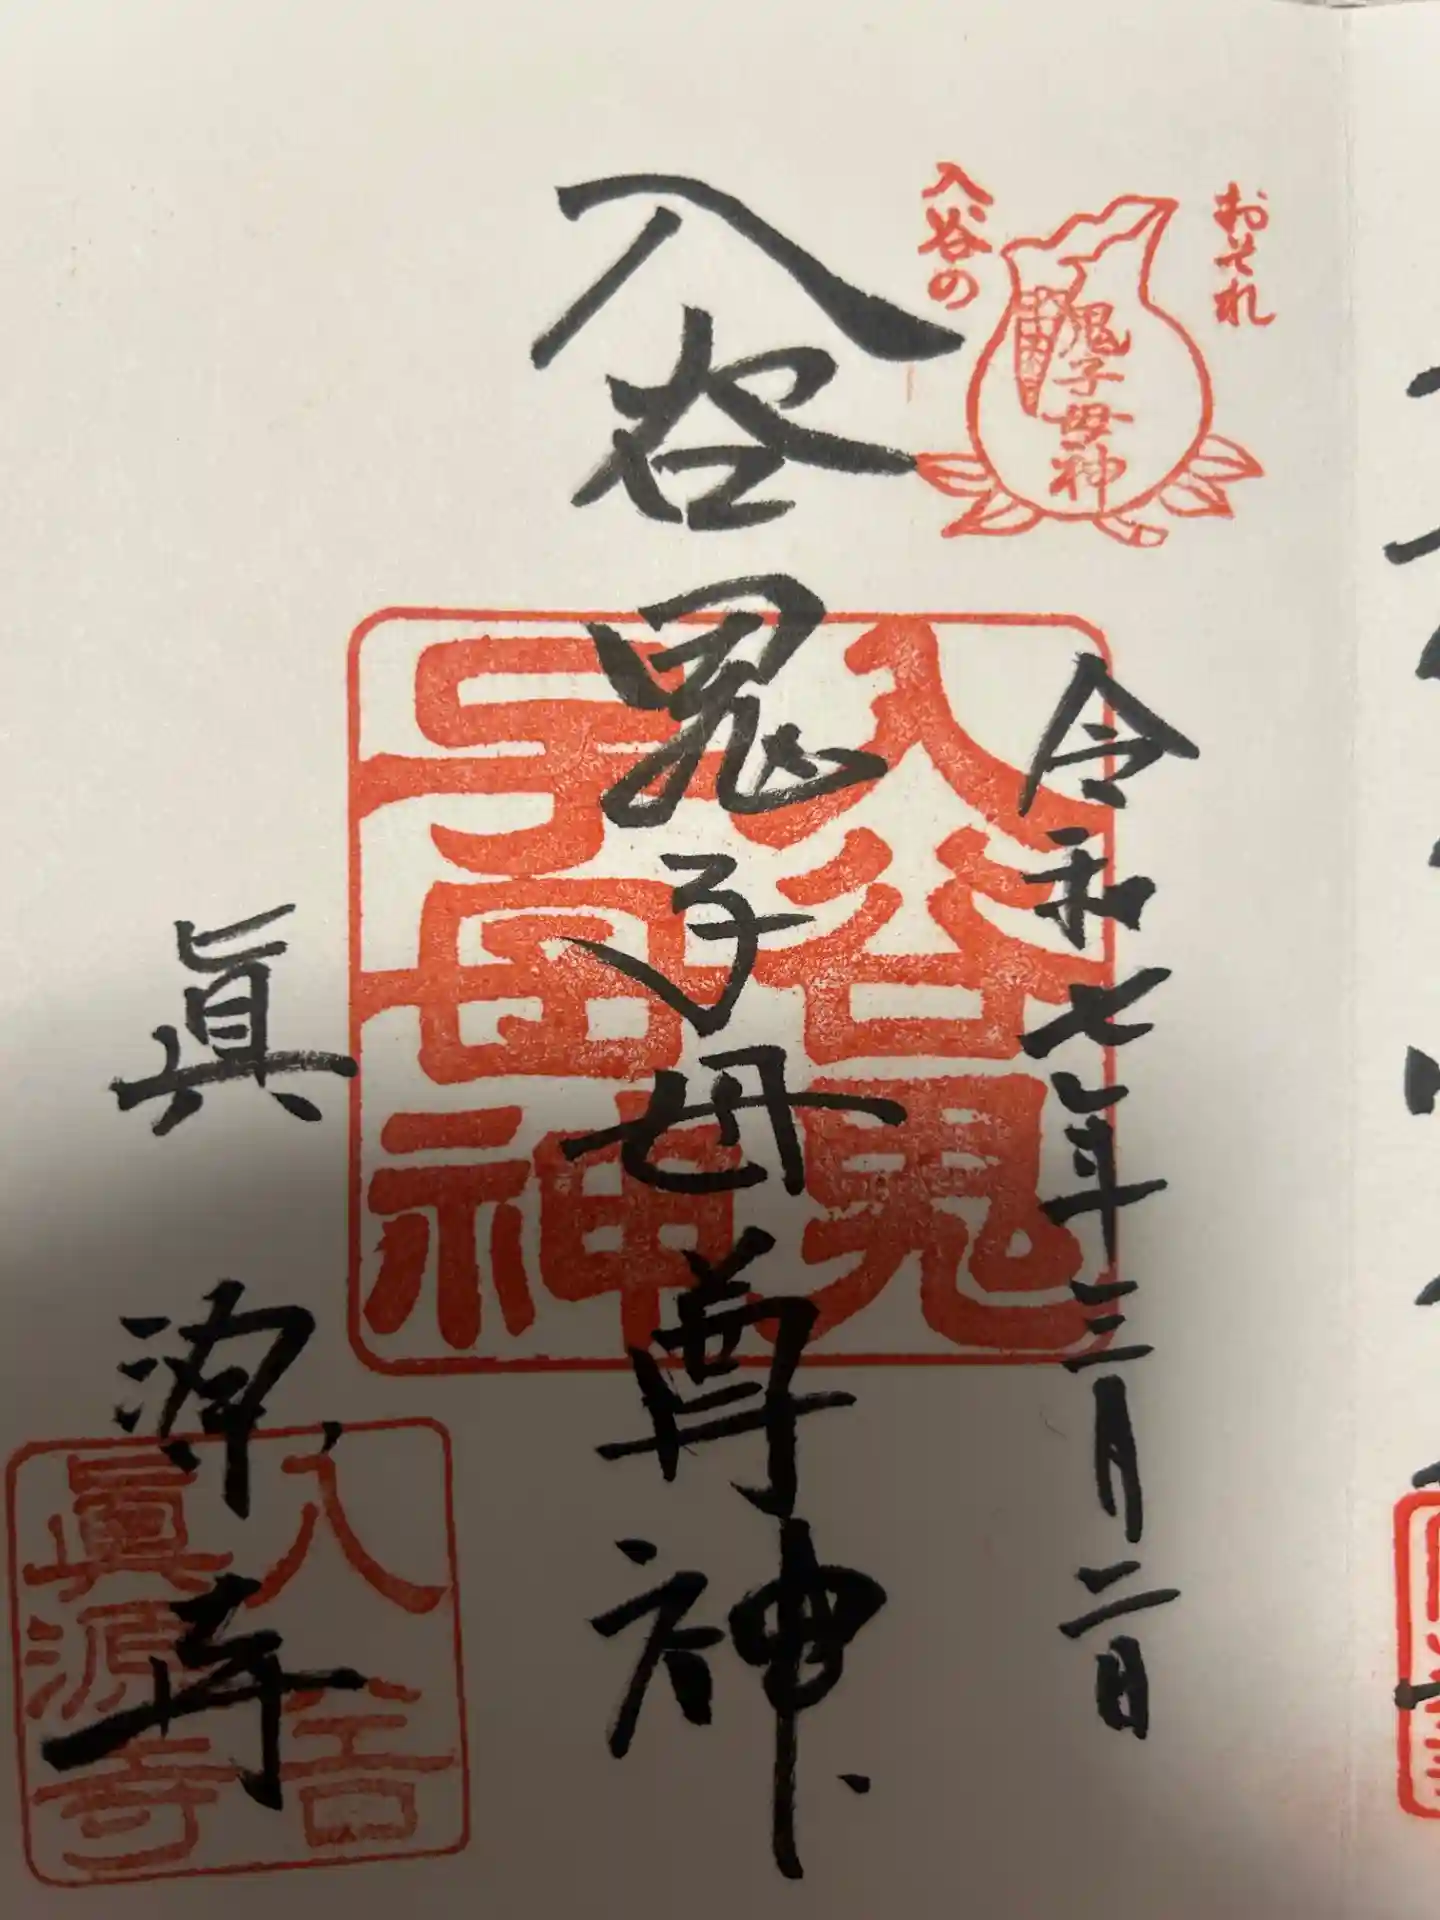 おそれ
入谷の
鬼子母神
令和七年三月二日
入谷鬼子母尊神
入谷鬼
子母神
眞源寺
眞源寺